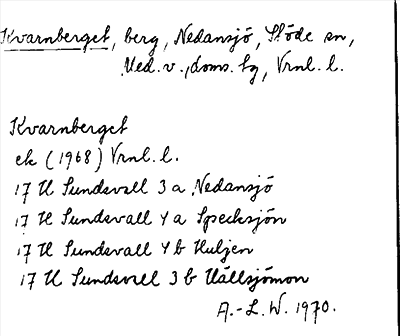 Kvarnberget, berg, Nedansjö, Stöde sn,
Med. v., doms. tg, Vrnl. l.
Kvarnberget
ek (1968) Vrnl. l.
17 H Sundsvall 3 a Nedansjö
17 H Sundsvall 4 a Specksjön
17 H Sundsvall 4 b Huljen
17 H Sundsvall 3 b Hällsjömon
A.-L. W. 1970.